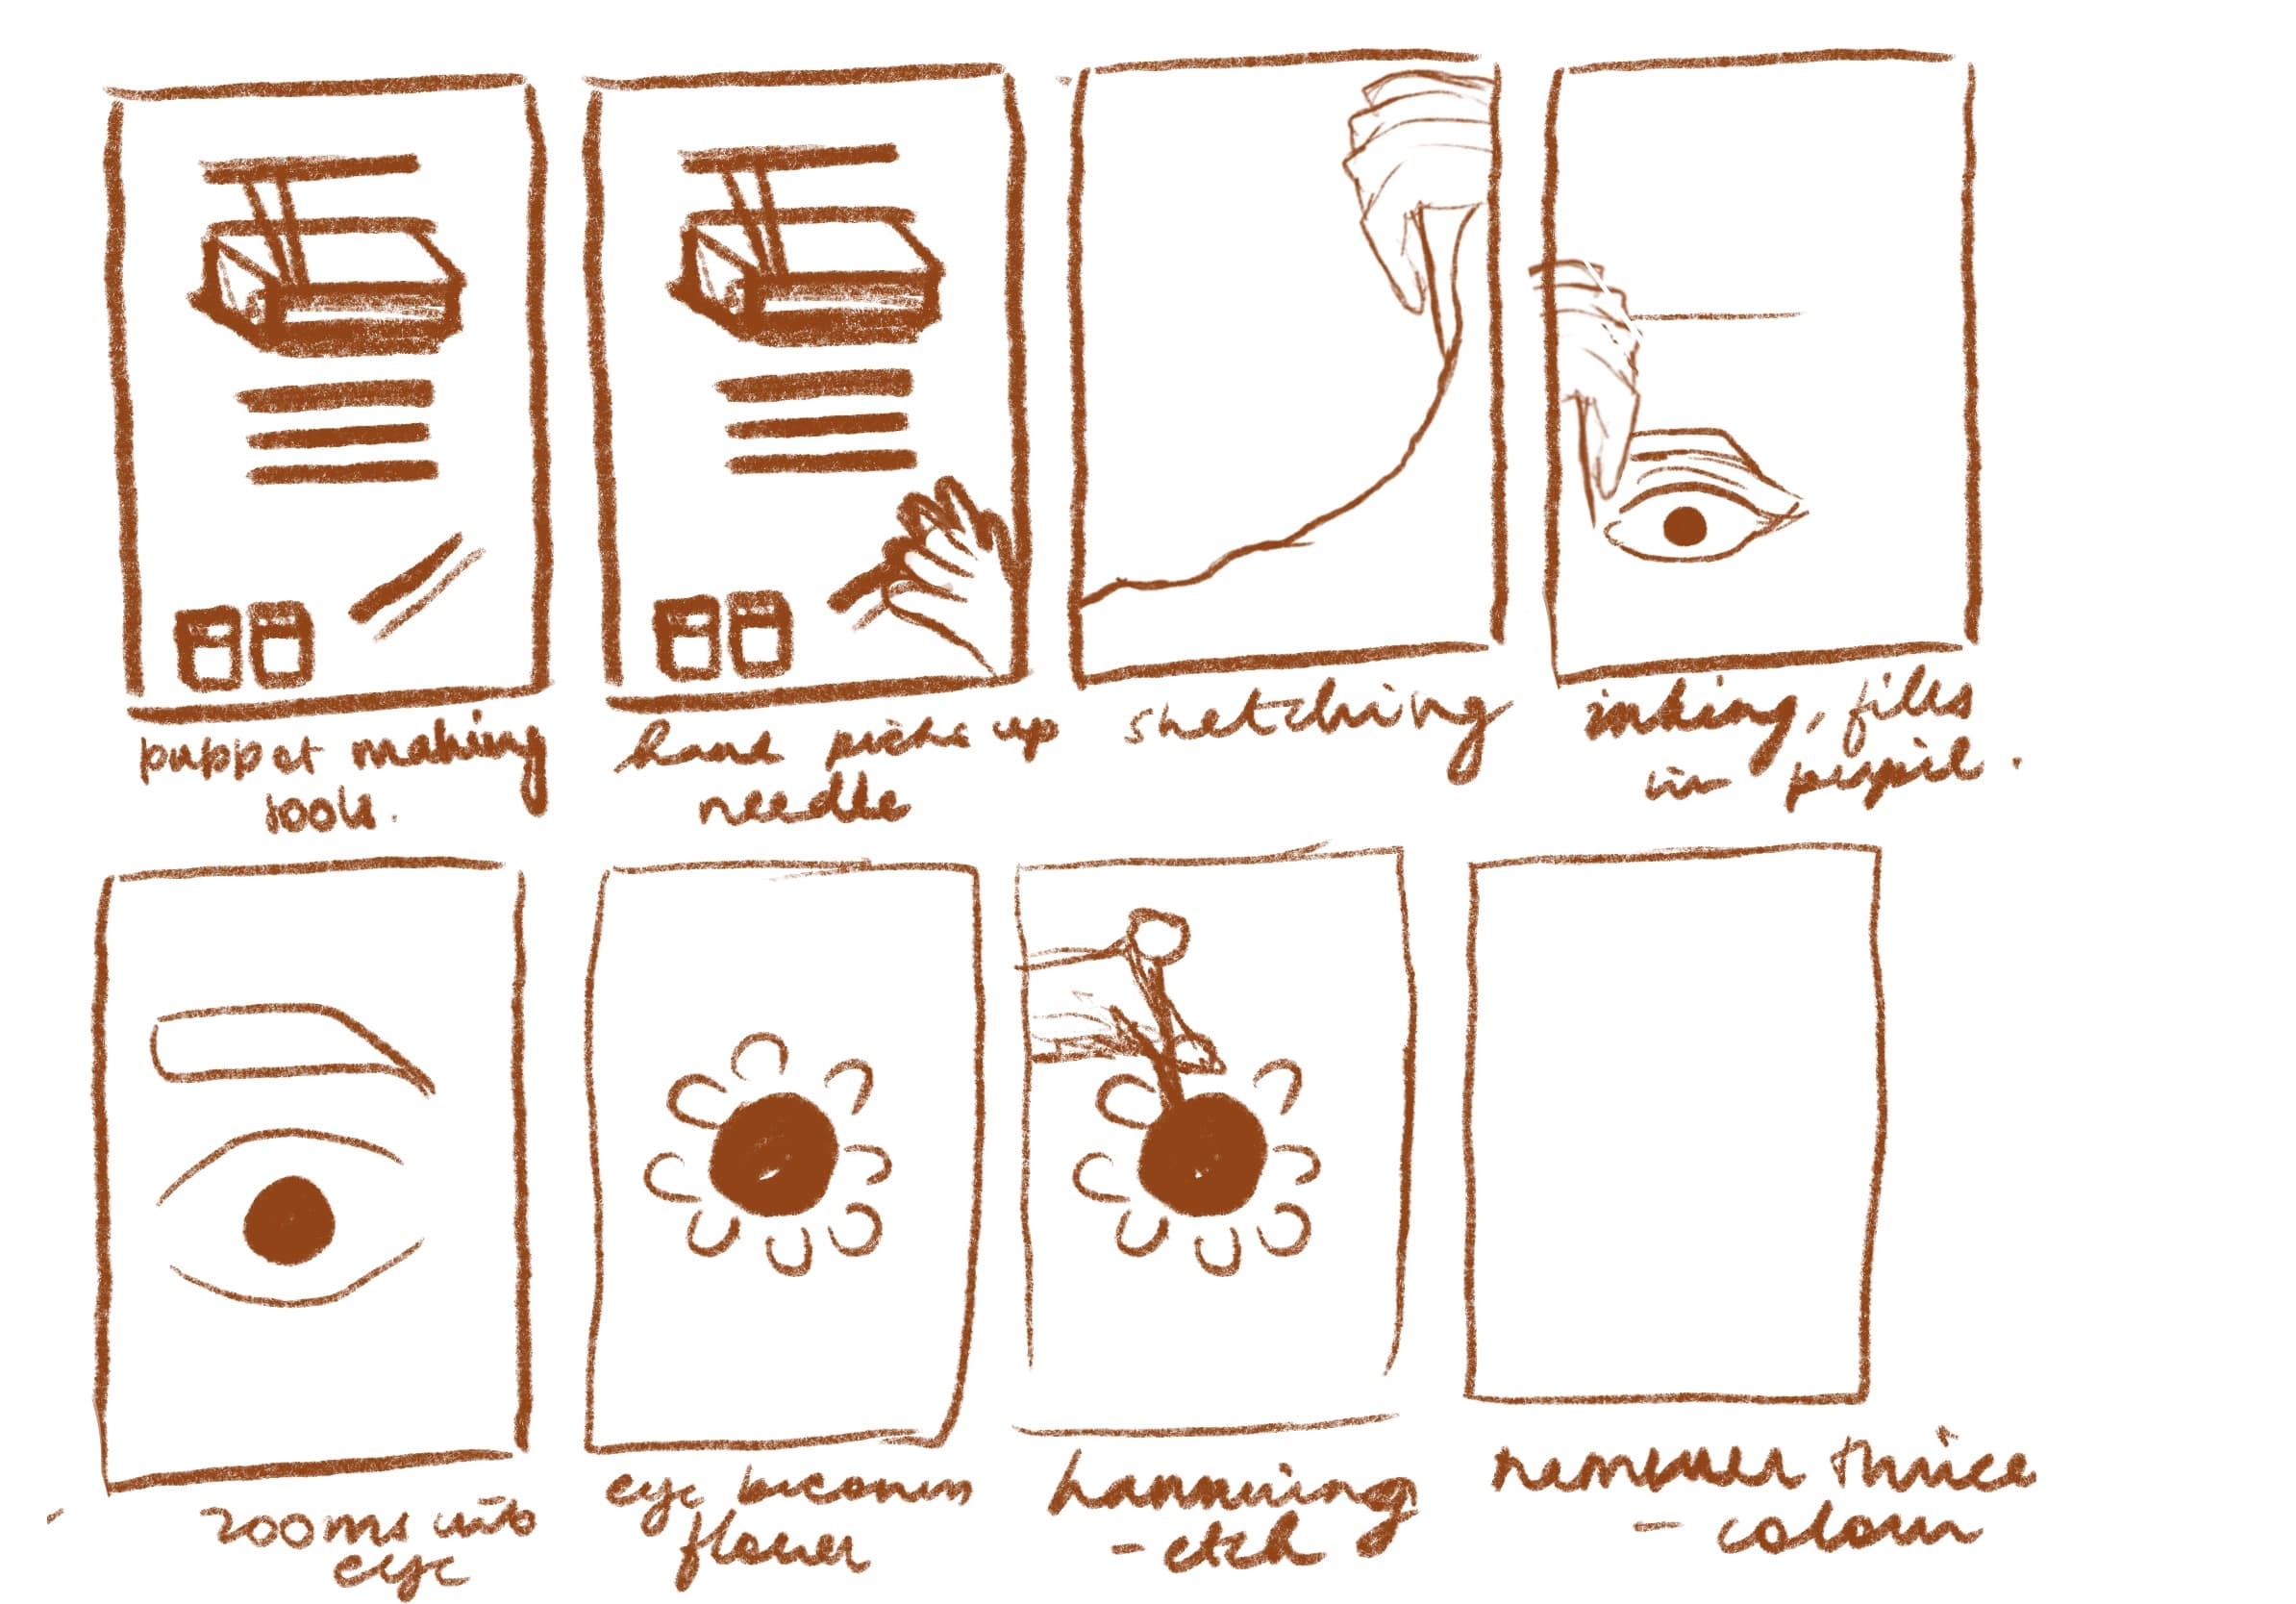 puppet making
tools.
hand picks up
needle
sketching
inking, fills
in pupil.
zooms into
eye
eye becomes
flower
hammering
- etch
thrice
- colour